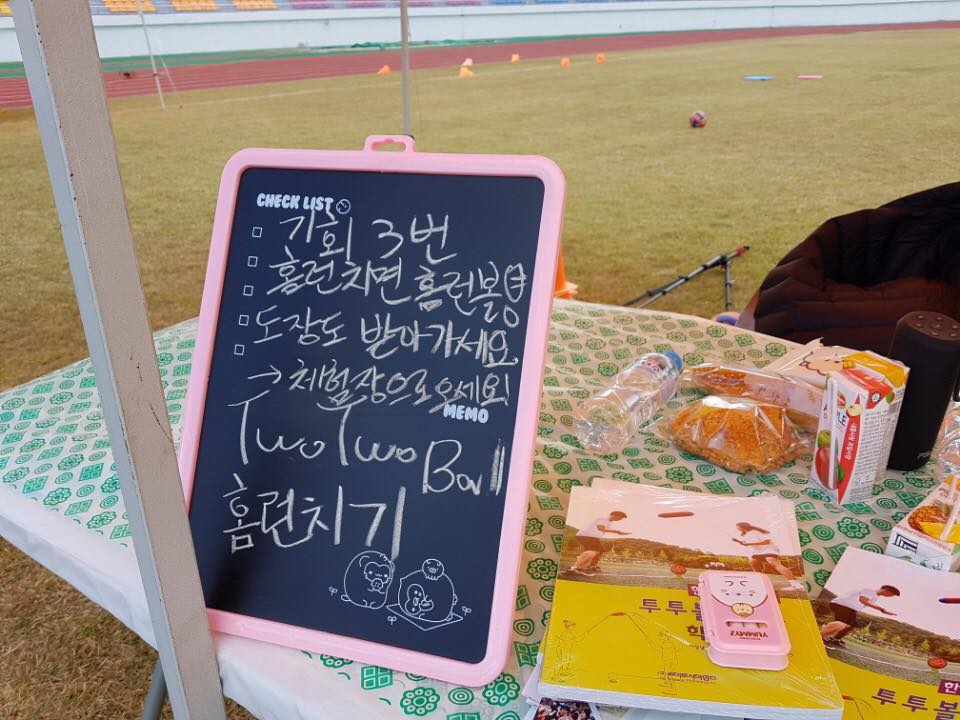 CHECK LIST
기회 3번
홈런치면 홈런볼
도장도 받아가세요
→ 체험장으로 오세요!
MEMO
Two Two Ball
홈런치기
투투볼
YUMMYZ
한
투투볼